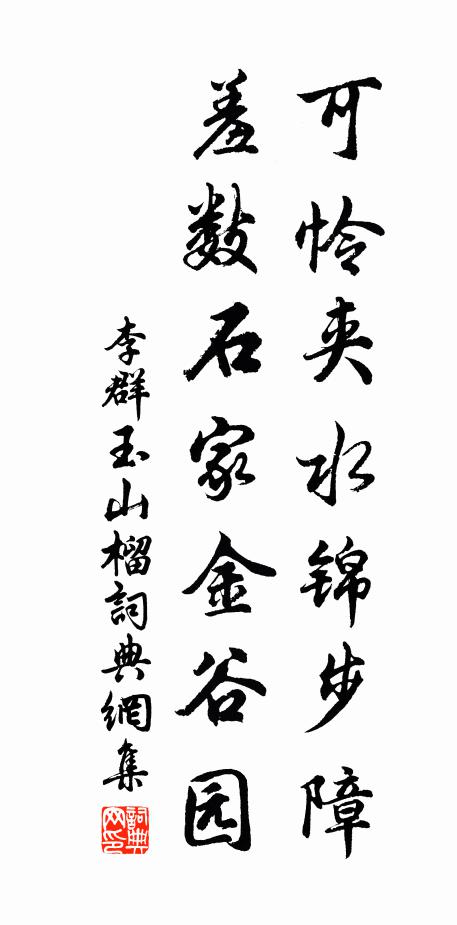 可怜夹水锦步障
羞数石家金谷园
李群玉山榴詞典網集
詞典网印